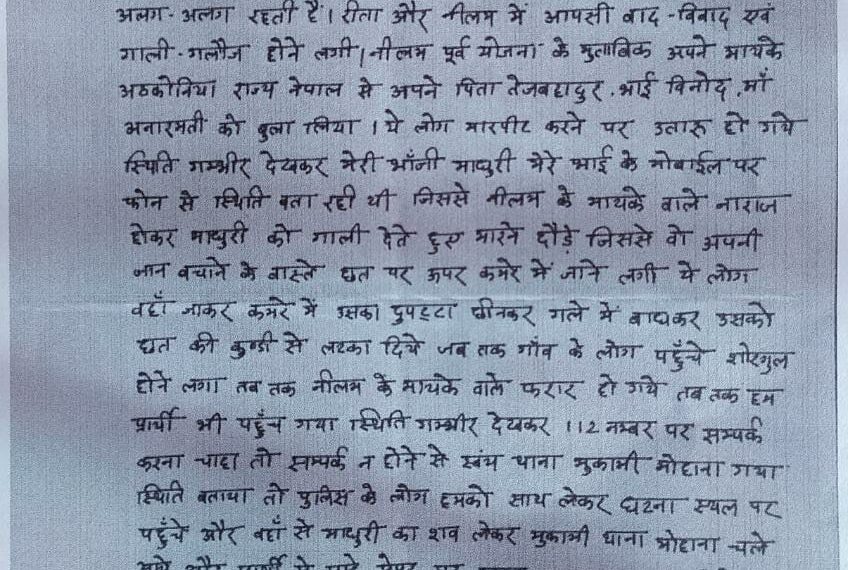 अलग-अलग रहती हैं। रीता और नीलम में आपसी वाद-विवाद एवं
गाली-गलौज होने लगी। नीलम पूर्व योजना के मुताबिक अपने मायके
अठकोनिया राज्य नेपाल से अपने पिता तेजबहादुर, भाई विनोद, माँ
अनारमती को बुला लिया। ये लोग मारपीट करने पर उतारू हो गये
स्थिति गम्भीर देखकर मेरी भाँजी माधुरी मेरे भाई के मोबाईल पर
फोन से स्थिति बता रही थी जिससे नीलम के मायके वाले नाराज
होकर माधुरी को गाली देते हुए मारने दौड़े जिससे वो अपनी
जान बचाने के वास्ते छत पर ऊपर कमरे में जाने लगी ये लोग
वहाँ जाकर कमरे में उसका दुपट्टा छीनकर गले में बाधकर उसको
छत की कुण्डी से लटका दिये जब तक गाँव के लोग पहुँचे शोरगुल
होने लगा तब तक नीलम के मायके वाले फरार हो गये तब तक हम
प्रार्थी भी पहुँच गया स्थिति गम्भीर देखकर 112 नम्बर पर सम्पर्क
करना चाहा तो सम्पर्क न होने से स्वंय थाना मुकामी मोहाना गया
स्थिति बताया तो पुलिस के लोग हमको साथ लेकर घटना स्थल पर
पहुँचे और वहाँ से माधुरी का शव लेकर मुकामी थाना मोहाना चले